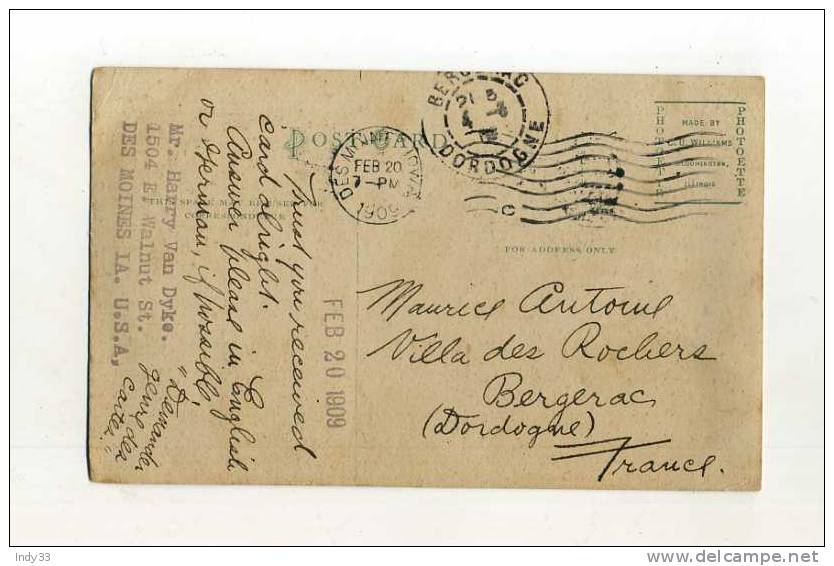 POST CARD
THIS SPACE MAY BE USED FOR
CORRESPONDENCE
PHOTOETTE
MADE BY
C. U. WILLIAMS
BLOOMINGTON,
ILLINOIS
PHOTOETTE
BERGERAC
DORDOGNE
DES MOINES, IOWA
FEB 20
7-PM
1909
C
FOR ADDRESS ONLY
Maurice Antoine
Villa des Rochers
Bergerac
(Dordogne)
France.
FEB 20 1909
Trust you received
card alright.
Answer please in English
or German, if possible.
Mr. Harry Van Dyke.
1504 E. Walnut St.
DES MOINES IA. U.S.A,
"Demande
des
cartes"
Indy33
www.delcampe.net